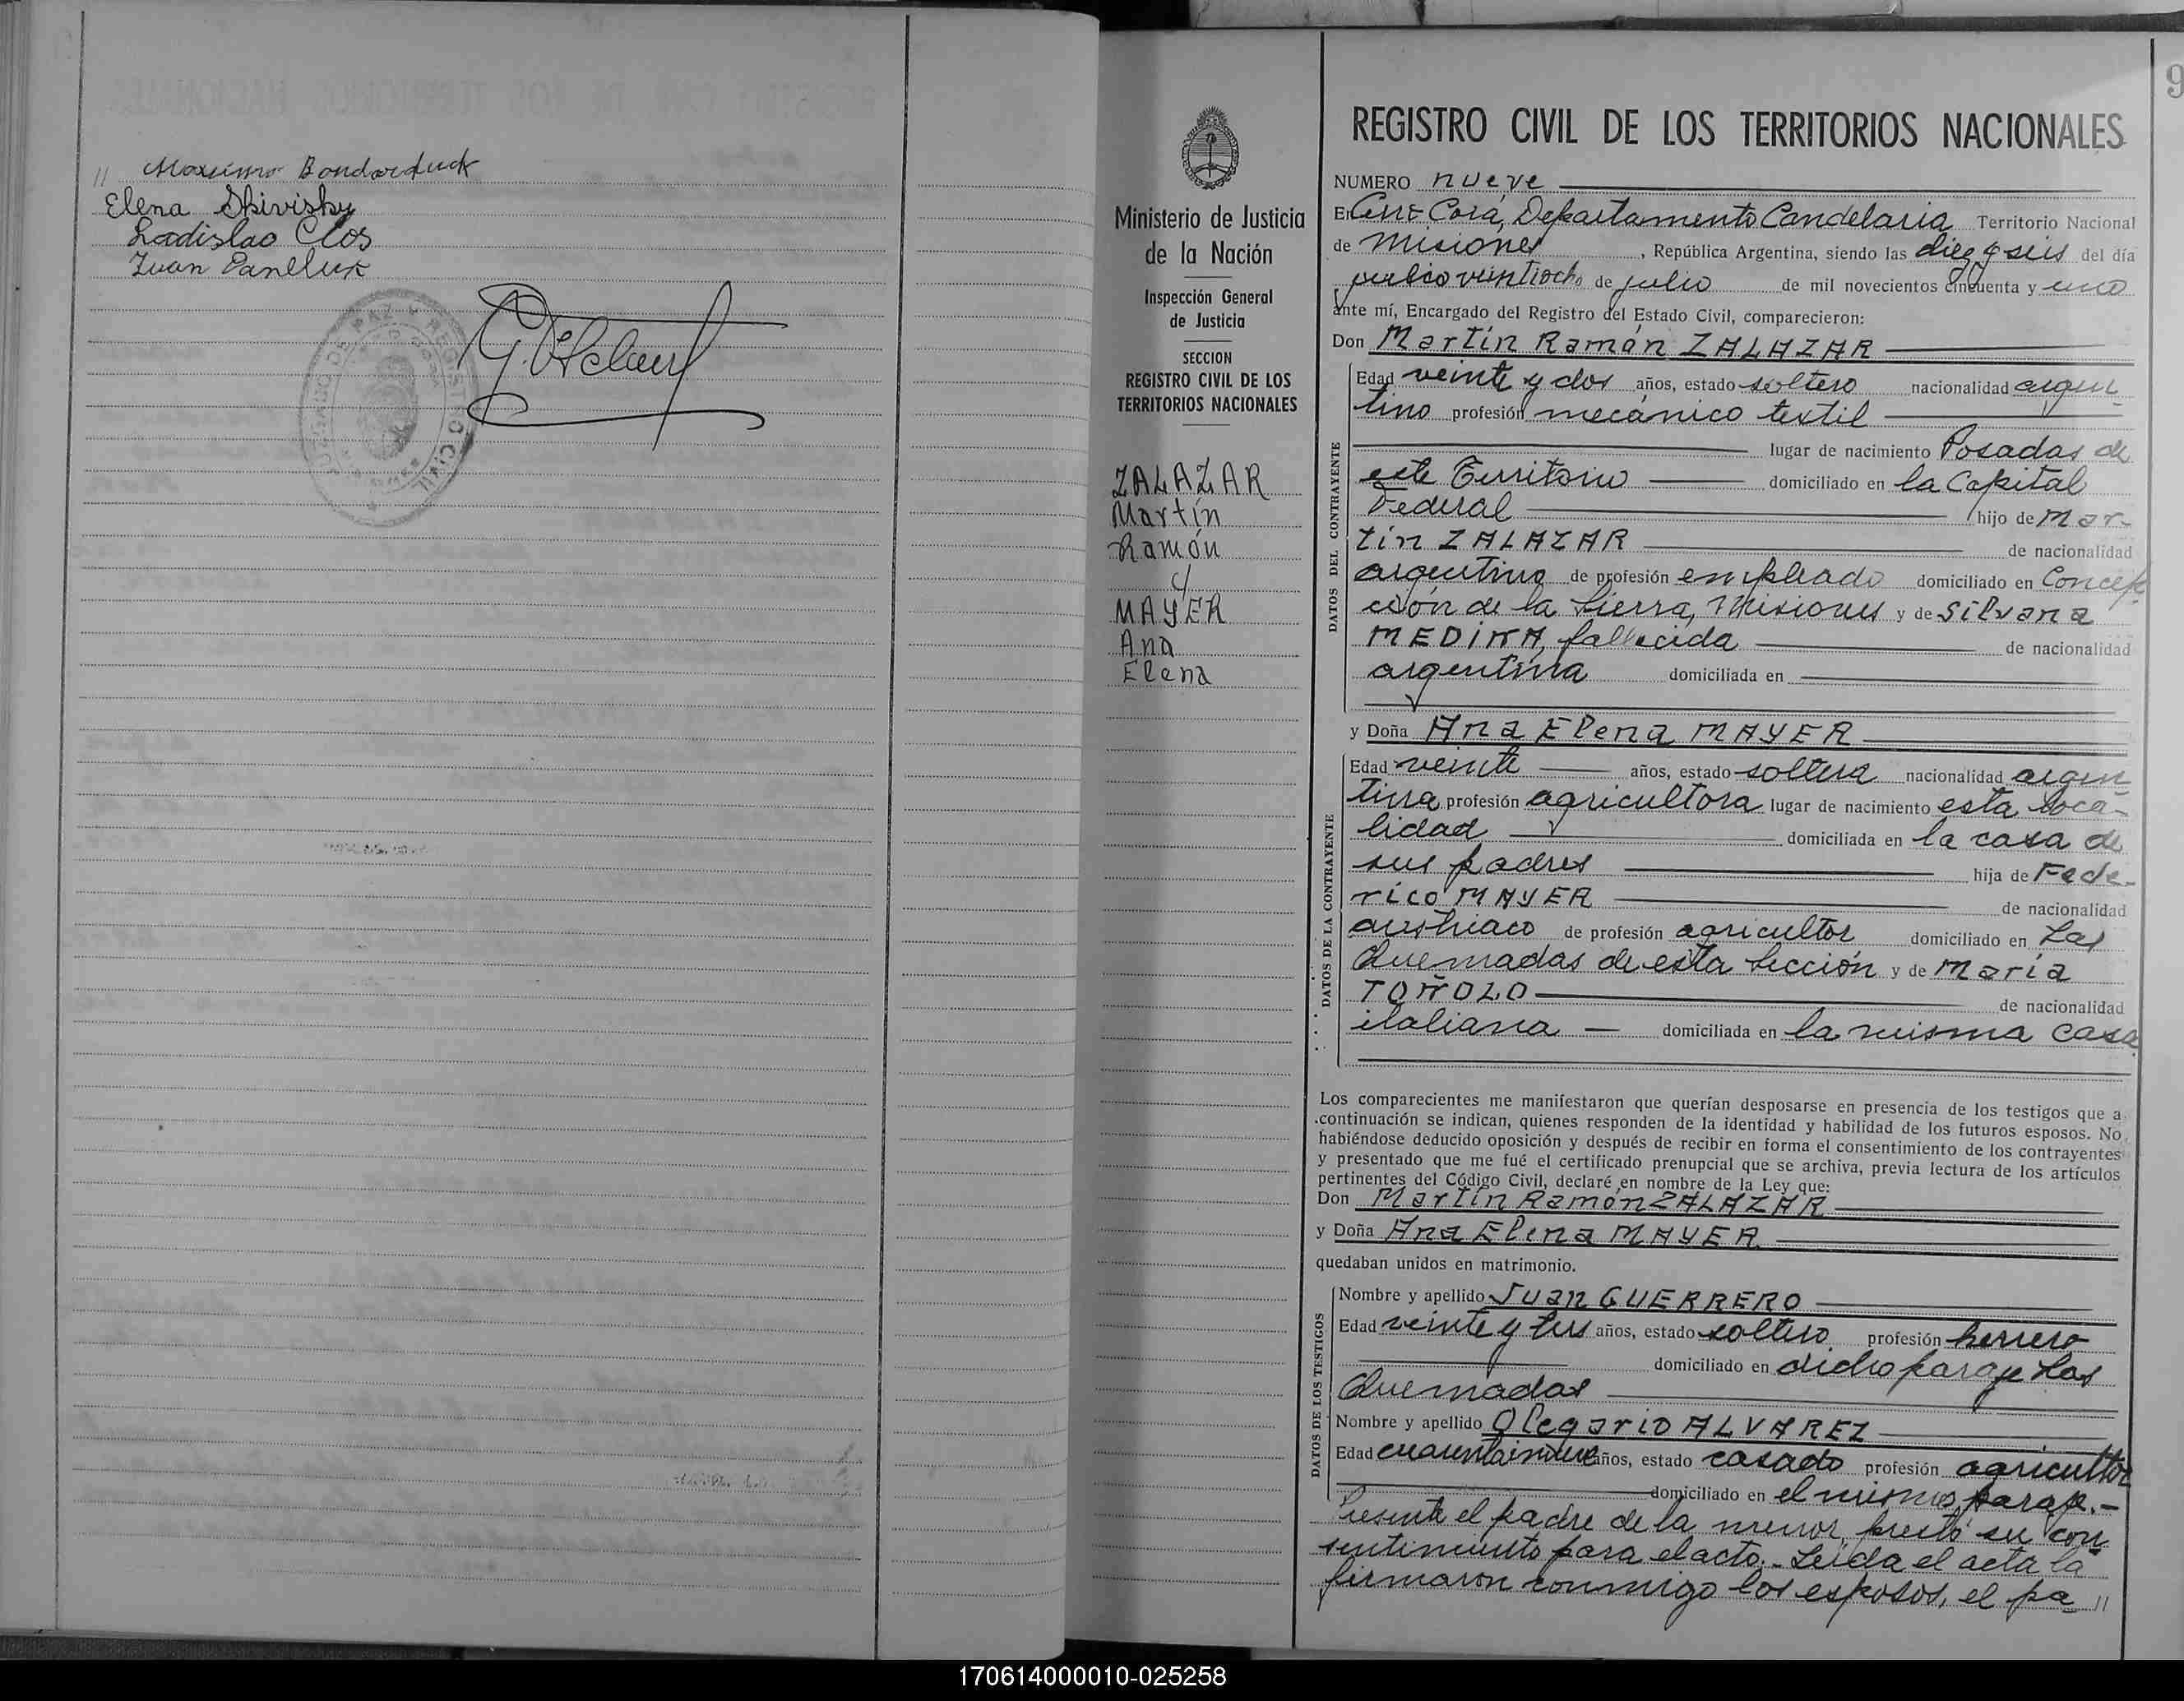 // Maximo Bondarchuck
Elena Skivisky
Ladislao Clos
Juan Paneluk
JUZGADO DE PAZ Y REGISTRO CIVIL
9
Ministerio de Justicia
de la Nación
Inspección General
de Justicia
SECCION
REGISTRO CIVIL DE LOS
TERRITORIOS NACIONALES
ZALAZAR
Martín
Ramón
c/
MAYER
Ana
Elena
REGISTRO CIVIL DE LOS TERRITORIOS NACIONALES
NUMERO nueve
En Cerro Corá, Departamento Candelaria Territorio Nacional
de Misiones, República Argentina, siendo las diez y seis del día
veintiocho de julio de mil novecientos cincuenta y uno
ante mí, Encargado del Registro del Estado Civil, comparecieron:
Don Martín Ramón ZALAZAR
DATOS DEL CONTRAYENTE
Edad veinte y dos años, estado soltero nacionalidad argen-
tino profesión mecánico textil
lugar de nacimiento Posadas de
este Territorio domiciliado en la Capital
Federal hijo de Mar-
tín ZALAZAR de nacionalidad
argentino de profesión empleado domiciliado en Concep-
ción de la Sierra, Misiones y de Silvana
MEDINA, fallecida de nacionalidad
argentina domiciliada en
y Doña Ana Elena MAYER
DATOS DE LA CONTRAYENTE
Edad veinte años, estado soltera nacionalidad argen-
tina profesión agricultora lugar de nacimiento esta loca-
lidad domiciliada en la casa de
sus padres hija de Fede-
rico MAYER de nacionalidad
austriaco de profesión agricultor domiciliado en Las
Quemadas de esta sección y de María
TOÑOLO de nacionalidad
italiana domiciliada en la misma casa
Los comparecientes me manifestaron que querían desposarse en presencia de los testigos que a
continuación se indican, quienes responden de la identidad y habilidad de los futuros esposos. No
habiéndose deducido oposición y después de recibir en forma el consentimiento de los contrayentes
y presentado que me fué el certificado prenupcial que se archiva, previa lectura de los artículos
pertinentes del Código Civil, declaré en nombre de la Ley que:
Don Martín Ramón ZALAZAR
y Doña Ana Elena MAYER
quedaban unidos en matrimonio.
DATOS DE LOS TESTIGOS
Nombre y apellido Juan GUERRERO
Edad veinte y tres años, estado soltero profesión herrero
domiciliado en dicho paraje Las
Quemadas
Nombre y apellido Olegario ALVAREZ
Edad cuarentainueve años, estado casado profesión agricultor
domiciliado en el mismo paraje.-
Presente el padre de la menor prestó su con-
sentimiento para el acto.- Leída el acta la
firmaron conmigo los esposos, el pa //
170614000010-025258